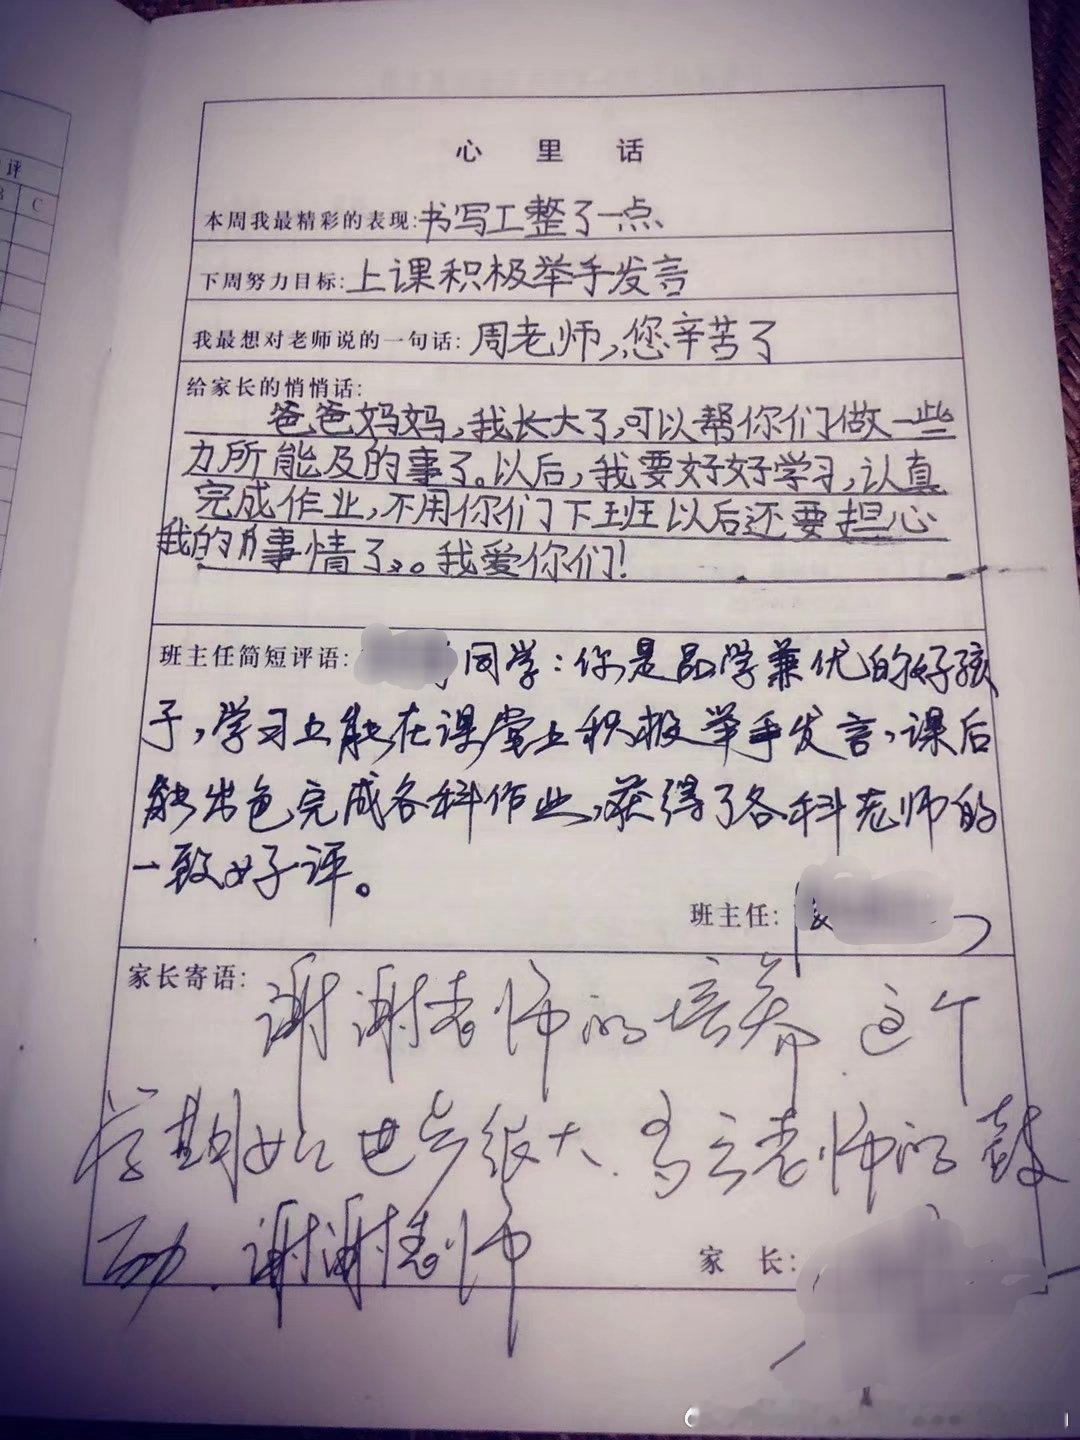 评
B C
心里话
本周我最精彩的表现:书写工整了一点
下周努力目标:上课积极举手发言
我最想对老师说的一句话:周老师,您辛苦了
给家长的悄悄话:
爸爸妈妈,我长大了,可以帮你们做一些
力所能及的事了。以后,我要好好学习,认真
完成作业,不用你们下班以后还要担心
我的事情了。我爱你们!
班主任简短评语: 同学:你是品学兼优的好孩
子,学习上能在课堂上积极举手发言,课后
能出色完成各科作业,获得了各科老师的
一致好评。
班主任:
家长寄语:
谢谢老师的培养 这个
学期 进步很大. 老师的鼓
励. 谢谢老师
家长: